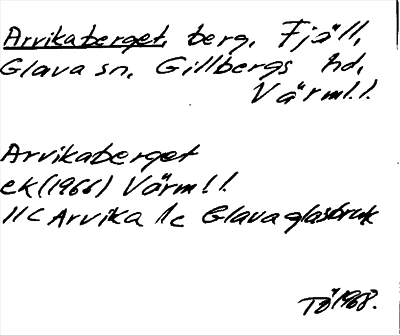 Arvikaberget, berg, Fjäll,
Glava sn, Gillbergs hd,
Värml.l.
Arvikaberget
ek (1966) Värml.l.
11C Arvika 1c Glava glasbruk
TÖ 1968.